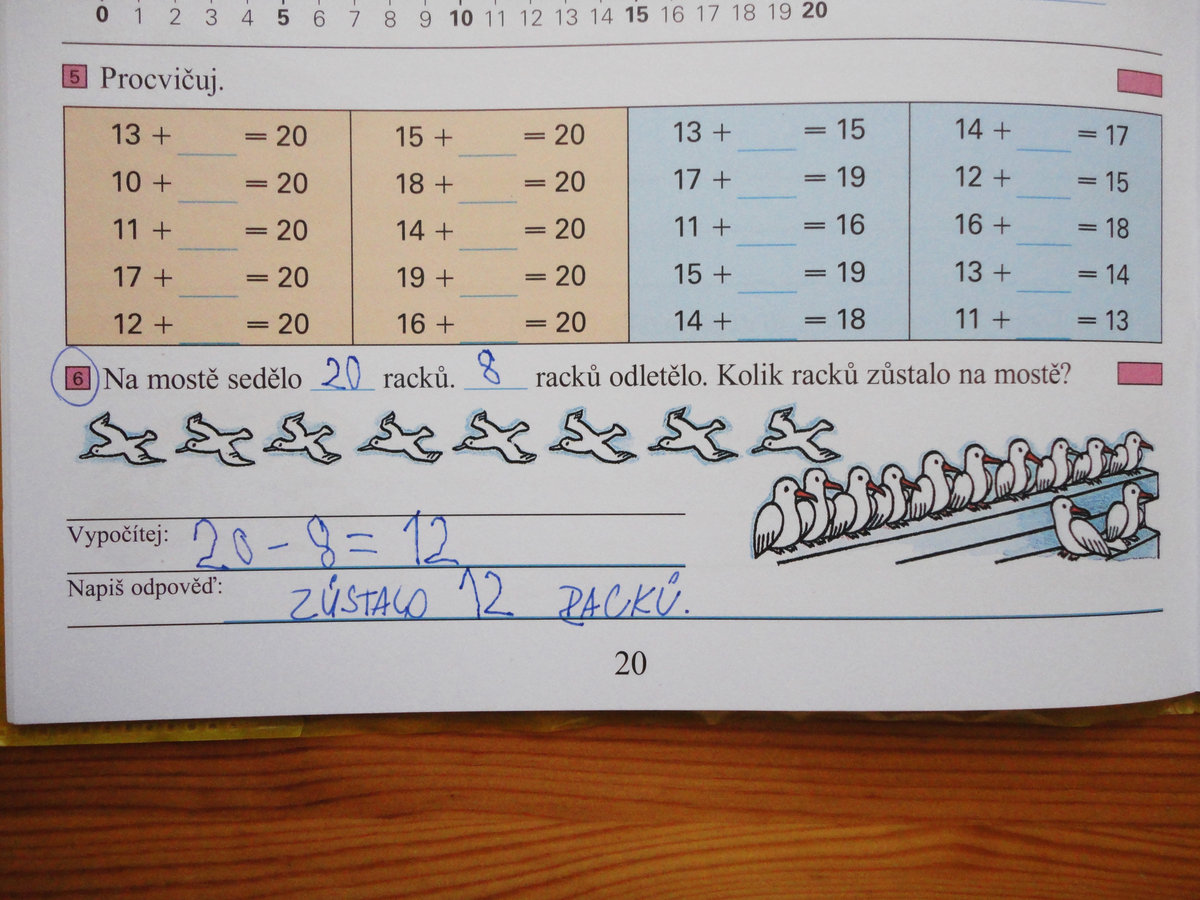 0 1 2 3 4 5 6 7 8 9 10 11 12 13 14 15 16 17 18 19 20
5 Procvičuj.
13 + ___ = 20 15 + ___ = 20 13 + ___ = 15 14 + ___ = 17
10 + ___ = 20 18 + ___ = 20 17 + ___ = 19 12 + ___ = 15
11 + ___ = 20 14 + ___ = 20 11 + ___ = 16 16 + ___ = 18
17 + ___ = 20 19 + ___ = 20 15 + ___ = 19 13 + ___ = 14
12 + ___ = 20 16 + ___ = 20 14 + ___ = 18 11 + ___ = 13
6 Na mostě sedělo 20 racků. 8 racků odletělo. Kolik racků zůstalo na mostě?
Vypočítej: 20 - 8 = 12
Napiš odpověď: ZŮSTALO 12 RACKŮ.
20